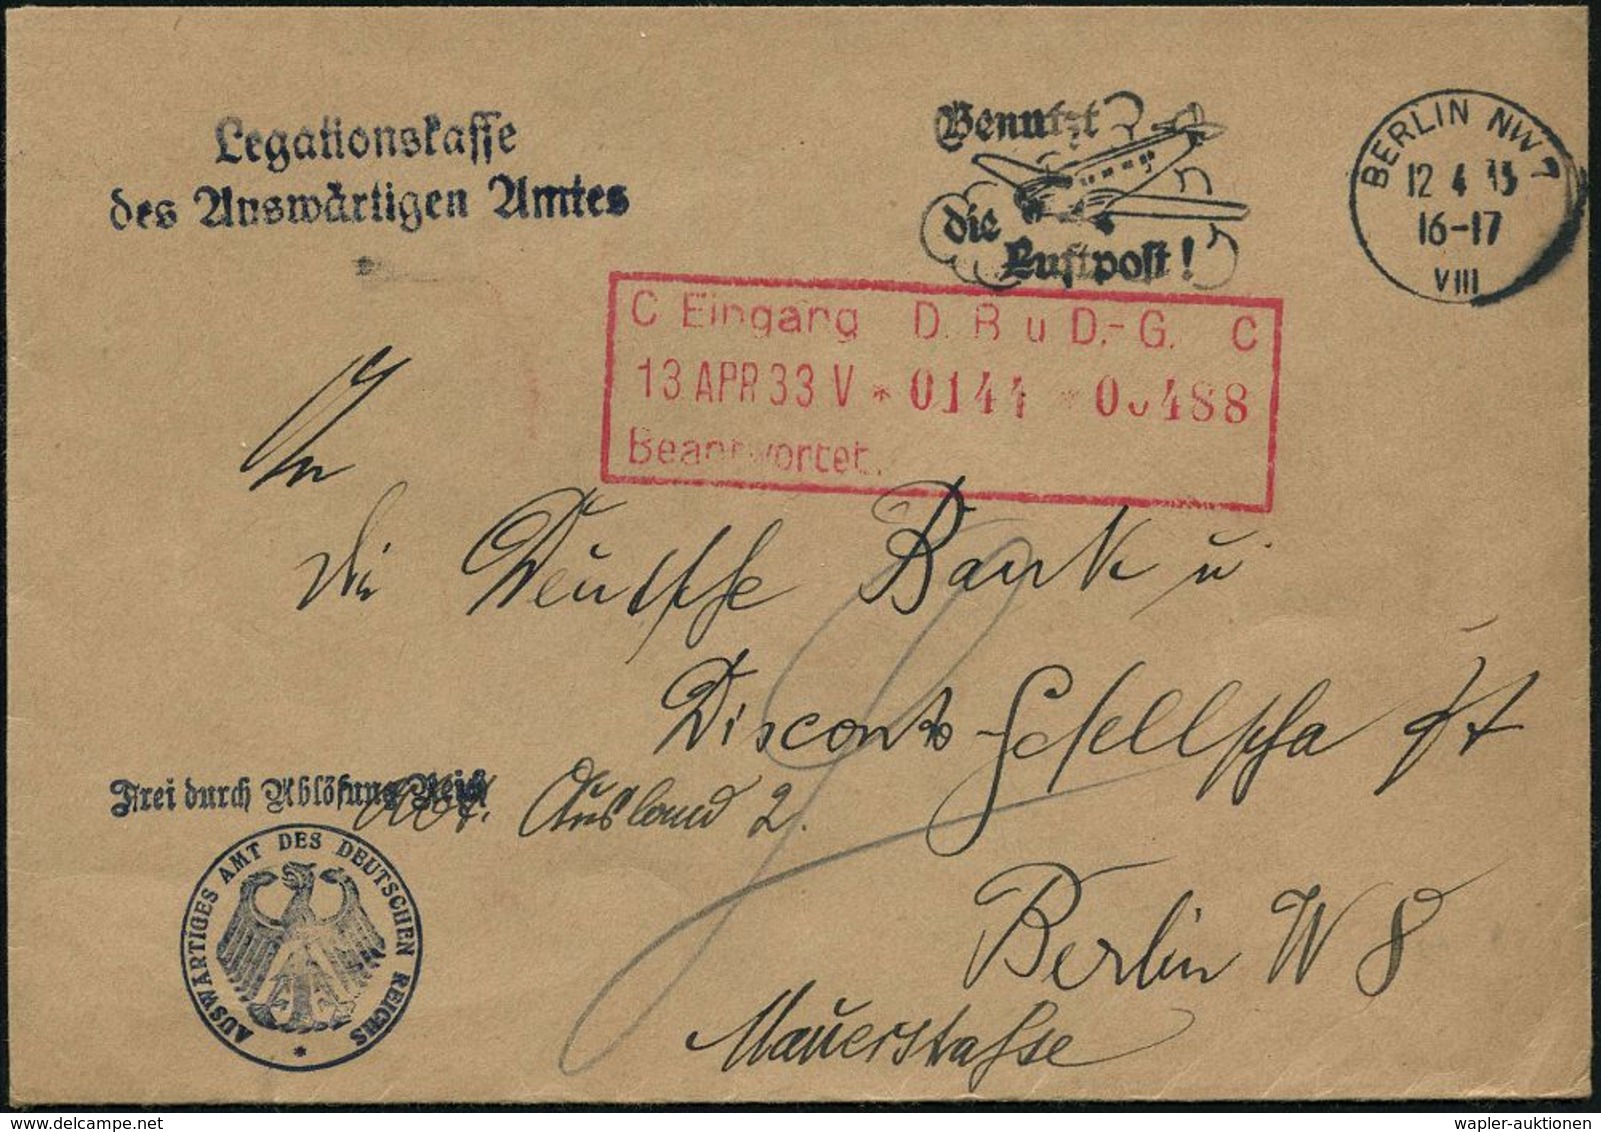 Legationskasse
des Auswärtigen Amtes
Benutzt
die
Luftpost!
BERLIN NW 7
12 4 33
16-17
VIII
C Eingang D. B u D.-G. C
13 APR 33 V * 0144 * 00488
Beantwortet:
An
die Deutsche Bank u
Disconto-Gesellschaft
Frei durch Ablösung Reich
Abt. Ausland 2.
AUSWÄRTIGES AMT DES DEUTSCHEN REICHS
*
Berlin W 8
Mauerstrasse
wapler-auktionen